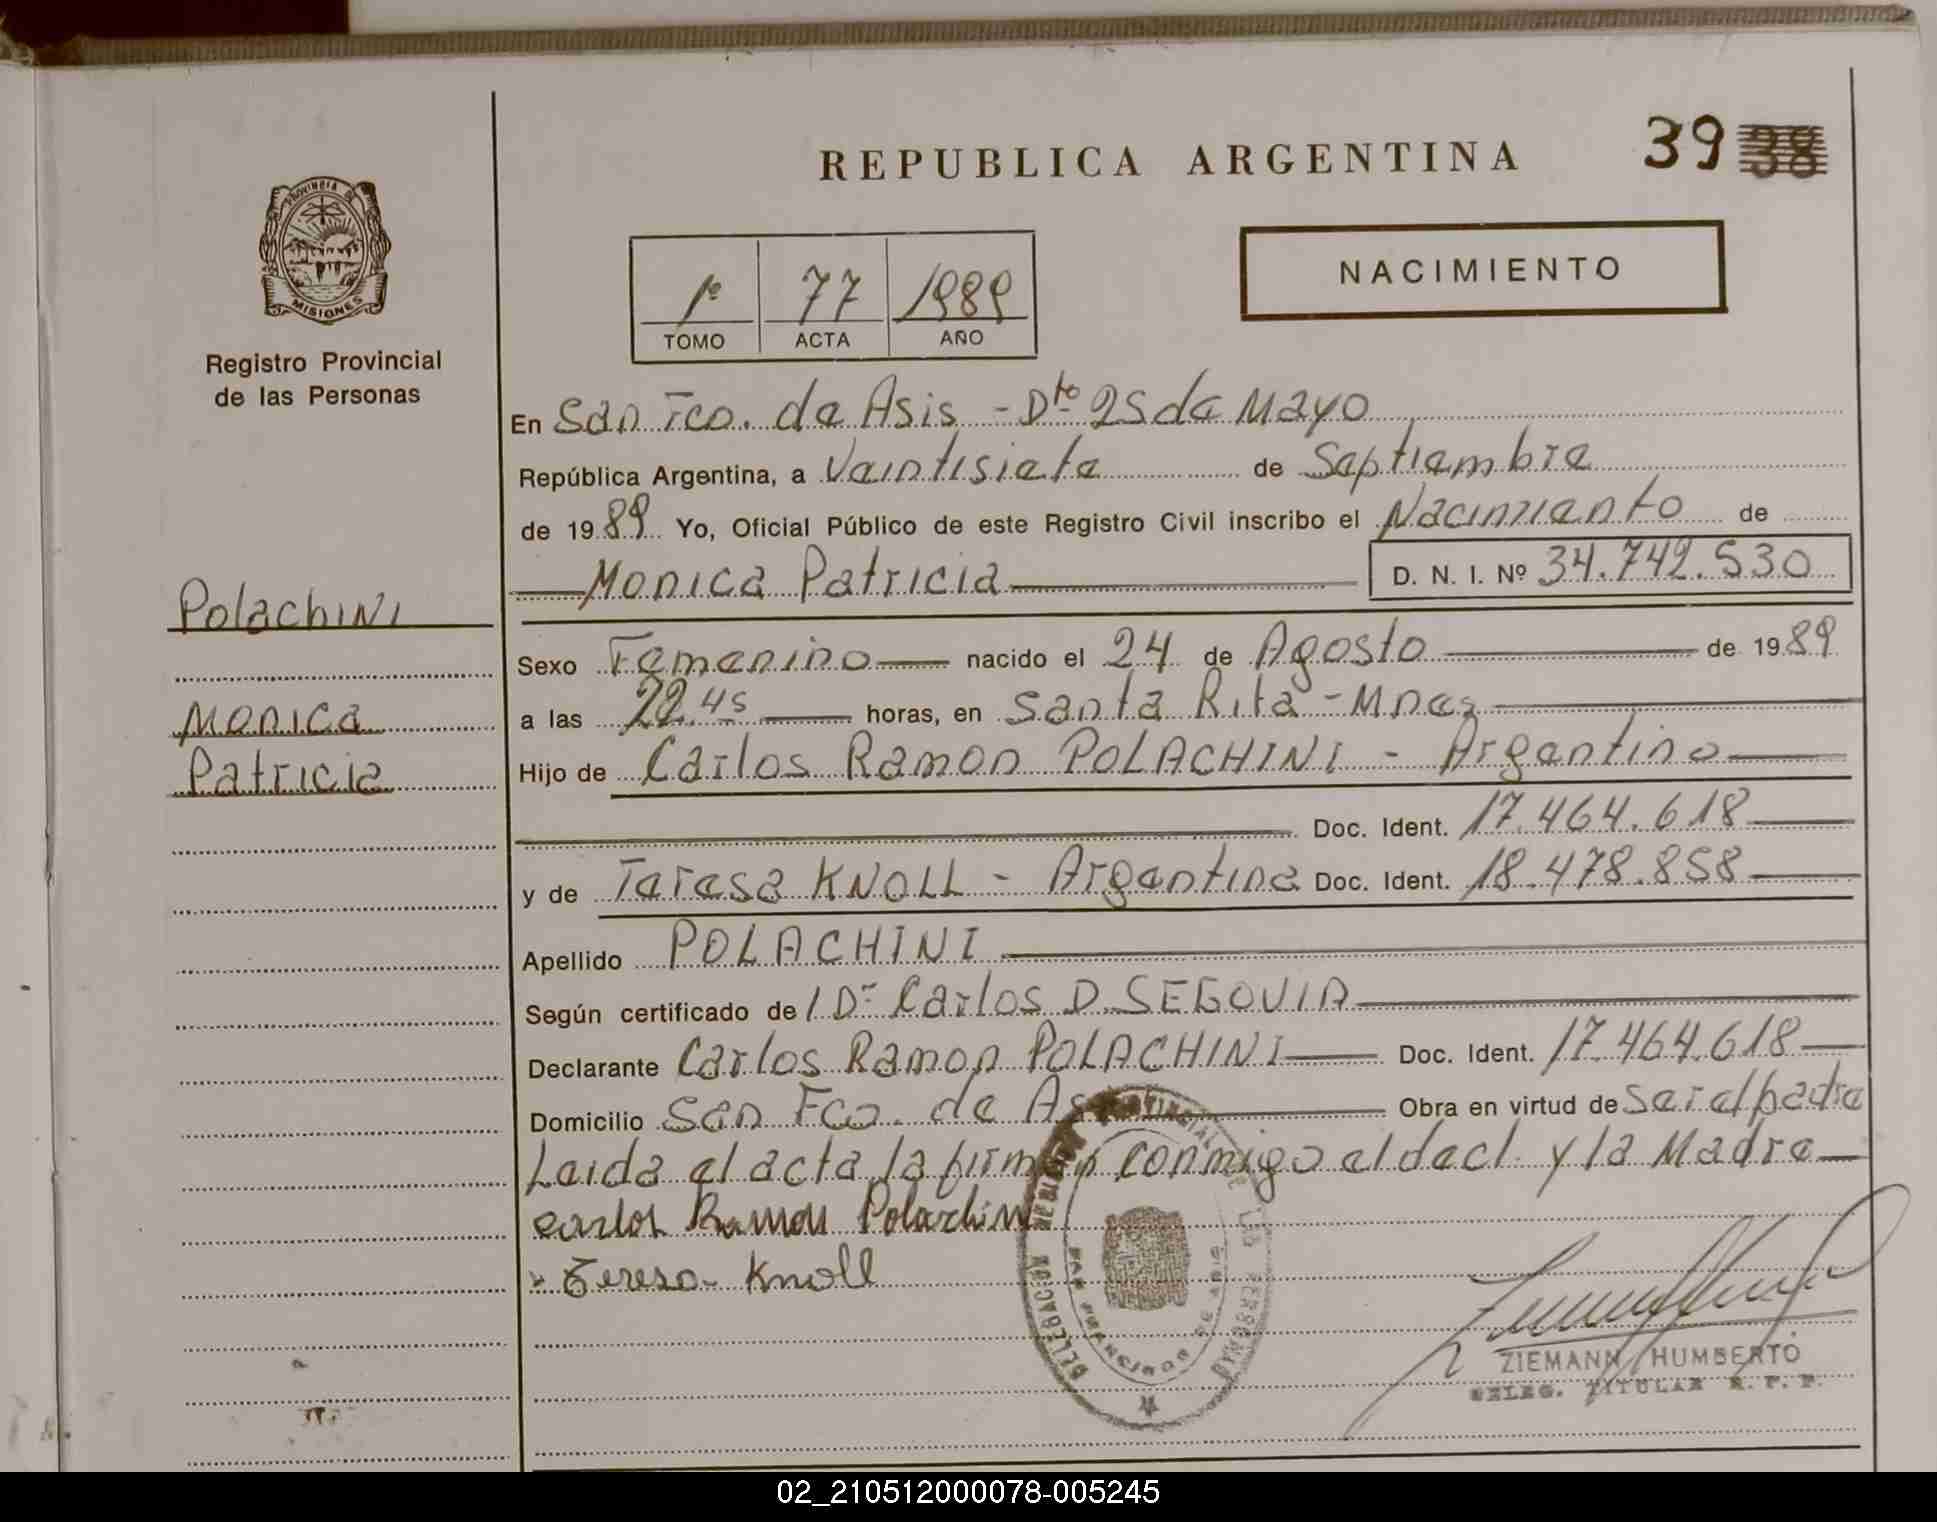 REPUBLICA ARGENTINA
39 38
PROVINCIA DE
MISIONES
Registro Provincial
de las Personas
1º 77 1989
TOMO ACTA AÑO
NACIMIENTO
En San Fco. de Asis - Dto 25 de Mayo
República Argentina, a Veintisiete de Septiembre
de 1989 Yo, Oficial Público de este Registro Civil inscribo el Nacimiento de
Monica Patricia D. N. I. Nº 34.742.530
Polachini
Monica
Patricia
Sexo Femenino nacido el 24 de Agosto de 1989
a las 22.45 horas, en Santa Rita - Mnes
Hijo de Carlos Ramon POLACHINI - Argentino
Doc. Ident. 17.464.618
y de Teresa KNOLL - Argentina Doc. Ident. 18.478.858
Apellido POLACHINI
Según certificado de / Dr Carlos D. SEGOVIA
Declarante Carlos Ramon POLACHINI Doc. Ident. 17.464.618
Domicilio San Fco. de As Obra en virtud de ser el padre
Leida el acta la firman conmigo el decl. y la Madre
Carlos Ramon Polachini
Teresa Knoll
DELEGACION
SAN FRANCISCO DE ASIS
ZIEMANN HUMBERTO
DELEG. TITULAR R. P. P.
02_210512000078-005245